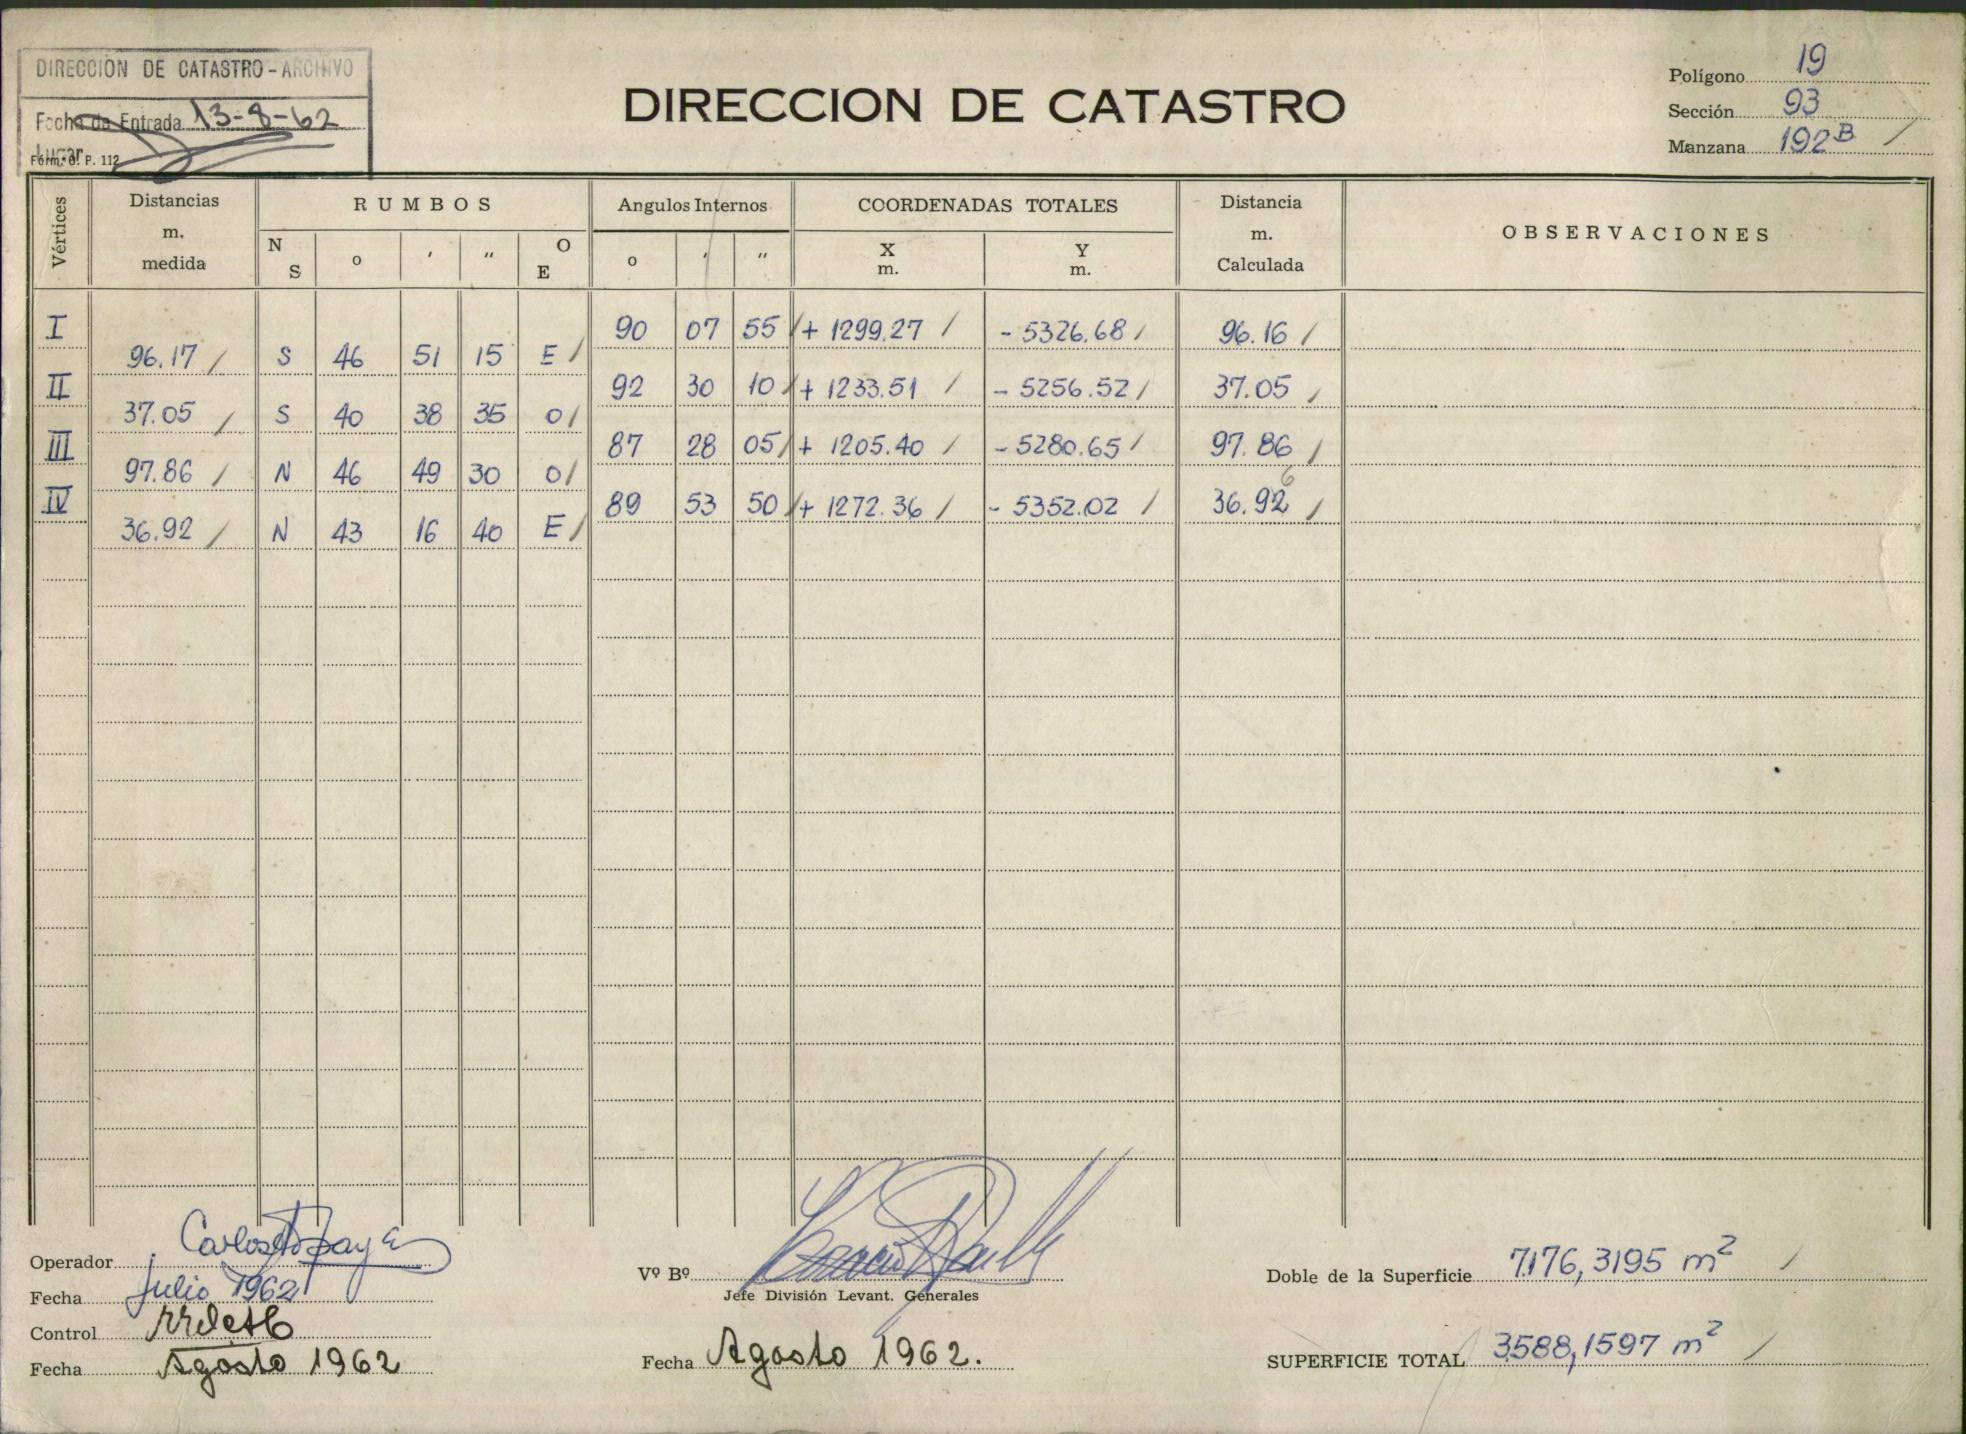 DIRECCION DE CATASTRO - ARCHIVO
Fecha de Entrada 13-8-62
Lugar
Form. C. P. 112
DIRECCION DE CATASTRO
Polígono 19
Sección 93
Manzana 192B /
Vértices Distancias m. medida RUMBOS Angulos Internos COORDENADAS TOTALES Distancia m. Calculada OBSERVACIONES
N S o ' " O E o ' " X m. Y m.
I 90 07 55 / + 1299.27 / - 5326.68 / 96.16 /
96.17 / S 46 51 15 E /
II 92 30 10 / + 1233.51 / - 5256.52 / 37.05 /
37.05 / S 40 38 35 O /
III 87 28 05 / + 1205.40 / - 5280.65 / 97.86 /
97.86 / N 46 49 30 O /
6
IV 89 53 50 / + 1272.36 / - 5352.02 / 36.92 /
36.92 / N 43 16 40 E /
Operador Carlos
Fecha Julio 1962
Control
Fecha Agosto 1962
Vº Bº
Jefe División Levant. Generales
Fecha Agosto 1962.
Doble de la Superficie 7176,3195 m² /
SUPERFICIE TOTAL 3588,1597 m² /